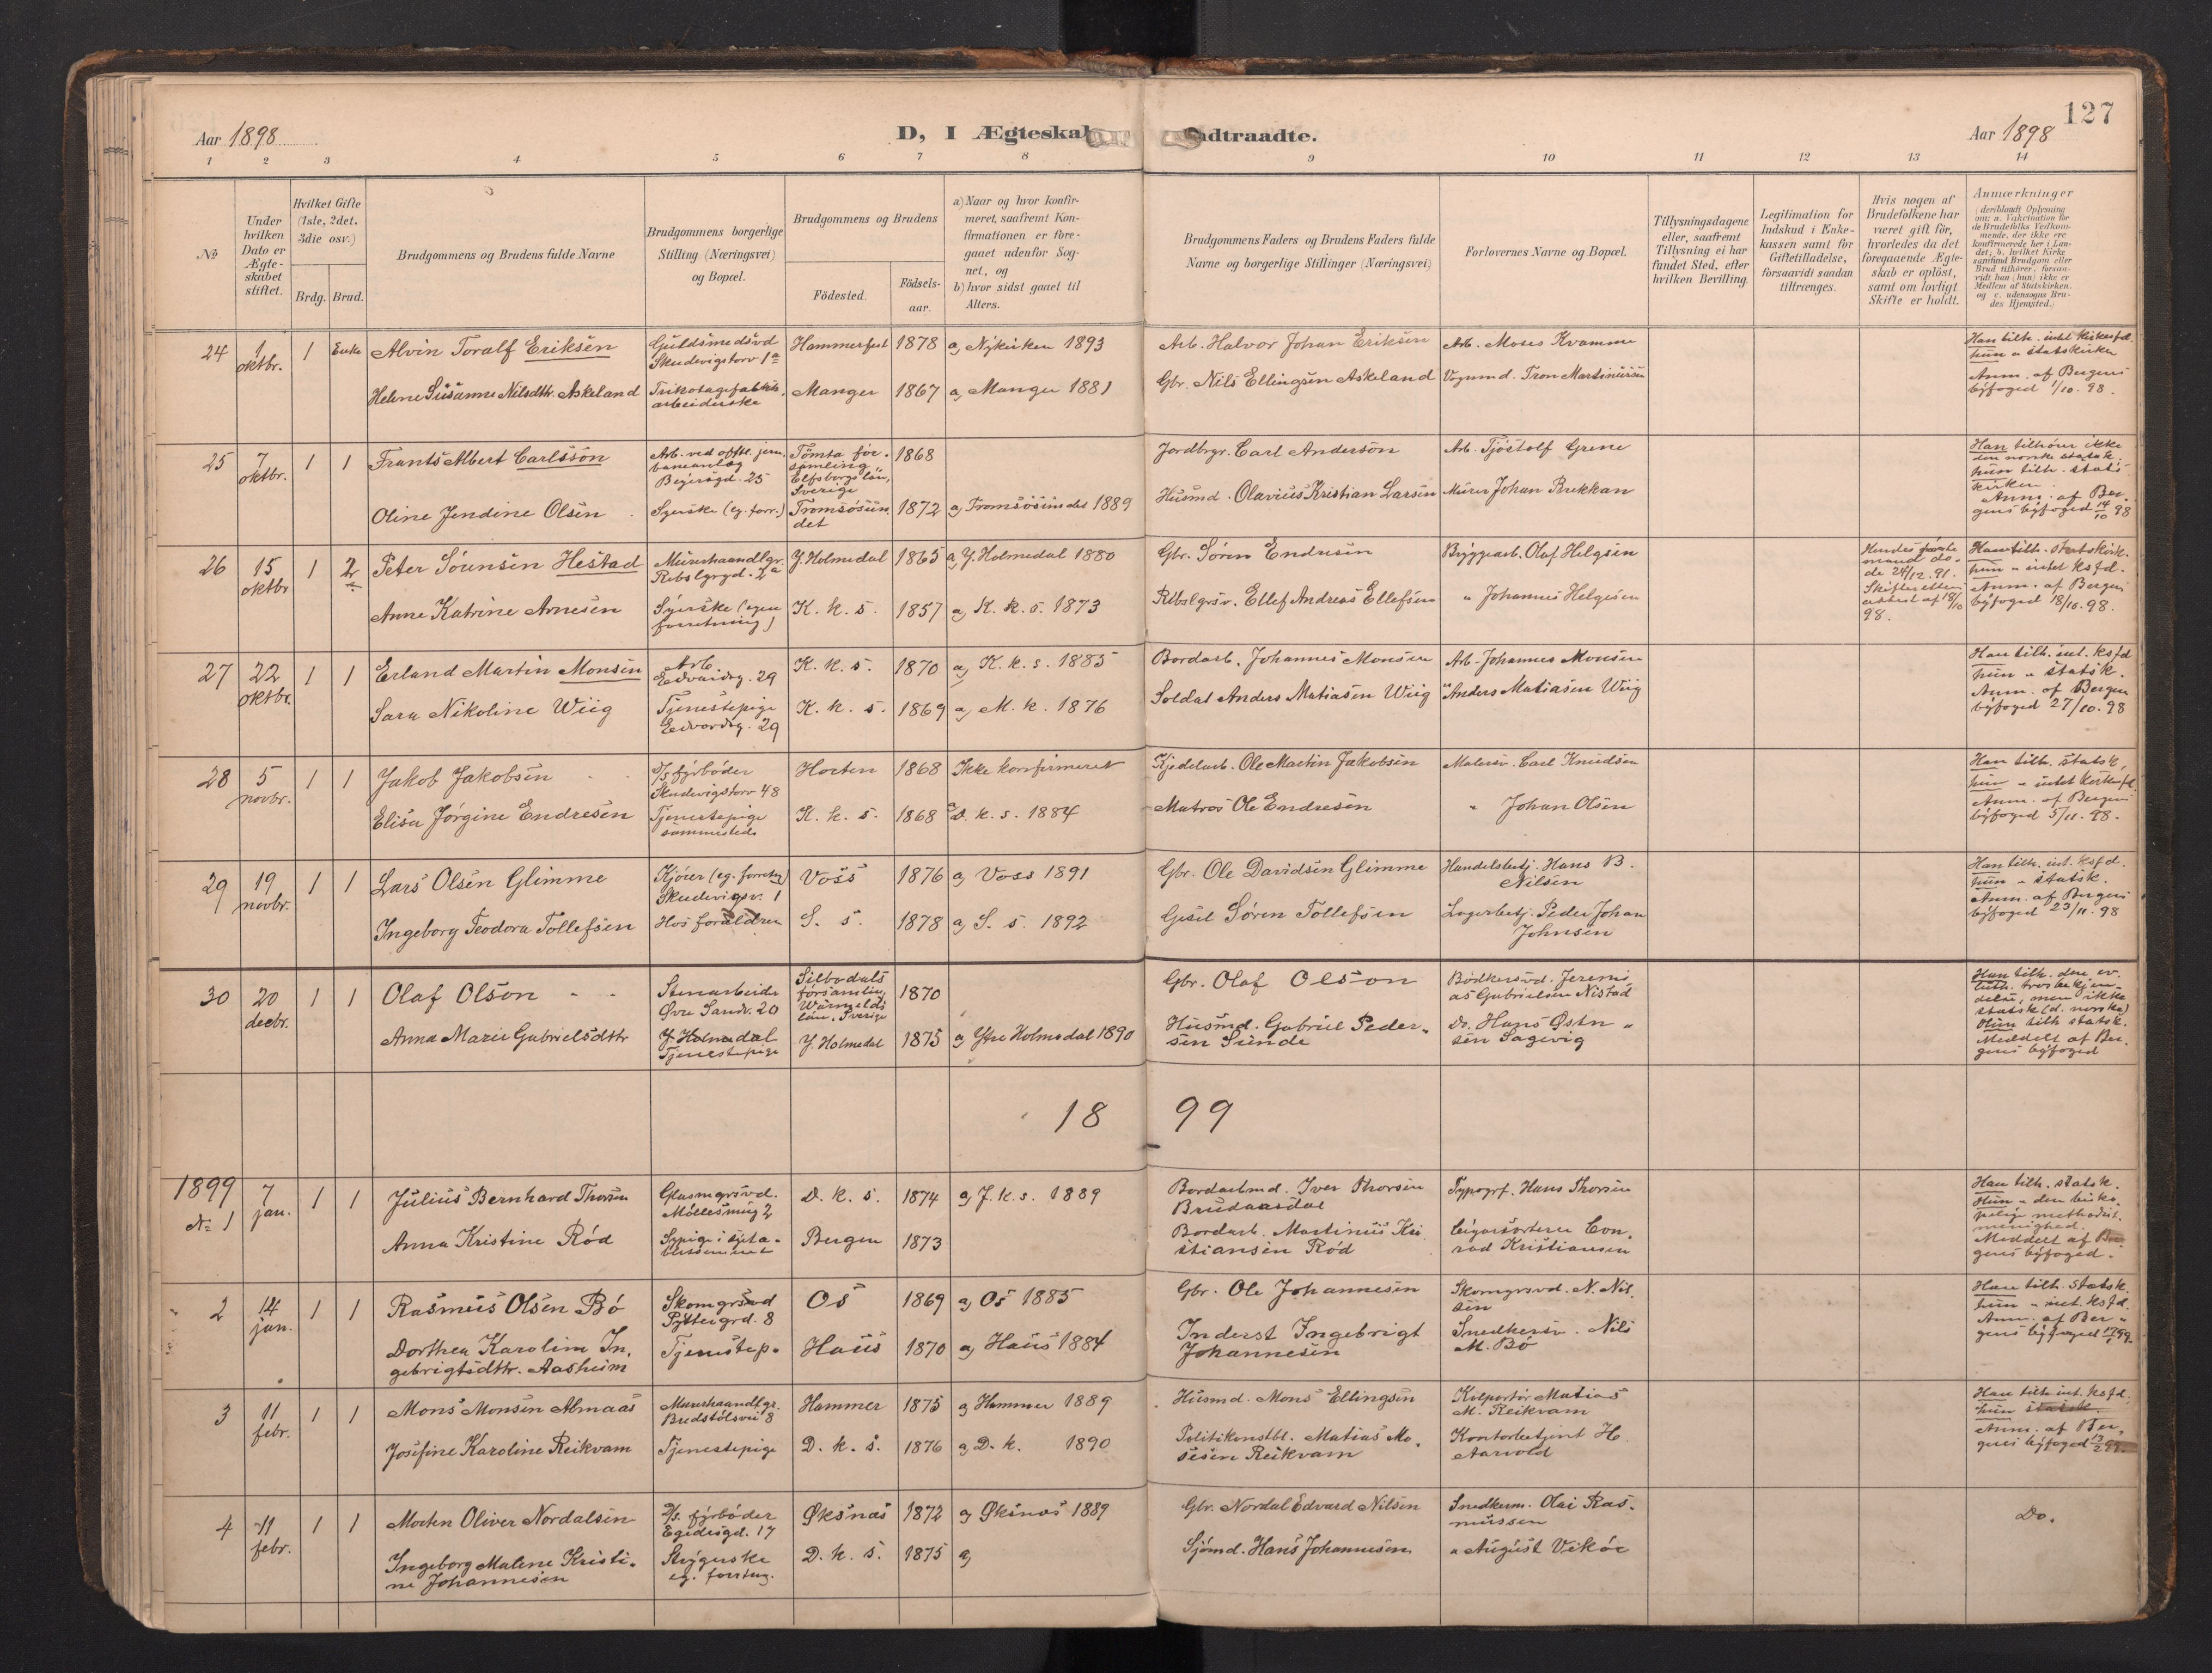 127
Aar 1898
D, I Ægteskab
adtraadte.
Aar 1898
1 2 3 4 5 6 7 8 9 10 11 12 13 14
No
Under hvilken Dato er Ægteskabet stiftet.
Hvilket Gifte (1ste, 2det, 3die osv.)
Brdg. Brud.
Brudgommens og Brudens fulde Navne
Brudgommens borgerlige Stilling (Næringsvei) og Bopæl.
Brudgommens og Brudens
Födested.
Födsels-aar.
a) Naar og hvor konfirmeret, saafremt Konfirmationen er foregaaet udenfor Sognet, og
b) hvor sidst gaaet til Alters.
Brudgommens Faders og Brudens Faders fulde Navne og borgerlige Stillinger (Næringsvei)
Forlovernes Navne og Bopæl.
Tillysningsdagene eller, saafremt Tillysning ei har fundet Sted, efter hvilken Bevilling.
Legitimation for Indskud i Enkekassen samt for Giftetilladelse, forsaavidt saadan tiltrænges.
Hvis nogen af Brudefolkene har været gift för, hvorledes da det foregaaende Ægteskab er oplöst, samt om lovligt Skifte er holdt.
Anmærkninger
(deriblandt Oplysning om: a. Vakcination for de Brudefolks Vedkommende, der ikke ere konfirmerede her i Landet; b. hvilket Kirkesamfund Brudgom eller Brud tilhörer, forsaavidt han (hun) ikke er Medlem af Statskirken, og c. udensogns Brudes Hjemsted.)
24 1 oktbr. 1 Enke Alvin Toralf Eriksen Guldsmedsvd Skudevigstorv 1a Hammerfest 1878 a, Nykirken 1893 Arb. Halvor Johan Eriksen Arb. Moses Kvamme Han tilh. intet kirkesfd. hun " statskirken Anm. af Bergens byfoged 1/10. 98.
Helene Susanne Nilsdttr. Askeland Trikotagefabrik. arbeiderske Manger 1867 a, Manger 1881 Gbr. Nils Ellingsen Askeland Vognmd. Tron Martinusen
25 7 oktbr. 1 1 Frants Albert Carlsson Arb. ved offtl. jernbaneanlæg 25 Tömta församling Elfsborgs län, Sverige 1868 Jordbrgr. Carl Anderson Arb. Tjöstolf Grene Han tilhører ikke den norske statsk. hun tilh. statskirken. Anm. af Bergens byfoged 14/10 98
Oline Jendine Olsen Syerske (eg. forr.) Tromsösundet 1872 a, Tromsösundet 1889 Husmd. Olavius Kristian Larsen Murer Johan Brekkan
26 15 oktbr 1 2 Peter Sörensen Hestad Murerhaandlgr. Rebslgrgd. 2a Y. Holmedal 1865 a, Y. Holmedal 1880 Gbr. Sören Endresen Bryggearb. Olaf Helgesen Hendes første mand döde 24/12. 91. Skifteretten attest af 18/10 98. Han tilh. statskirk. hun " intet ksfd. Anm. af Bergens byfoged 18/10. 98.
Anne Katrine Arnesen Syerske (egen forretning) K. k. s. 1857 a, K. k. s. 1873 Rebslgrsv. Ellef Andreas Ellefsen " Johannes Helgesen
27 22 oktbr. 1 1 Erland Martin Monsen Arb. Edvardsg. 29 K. k. s. 1870 a, K. k. s. 1885 Bordarb. Johannes Monsen Arb. Johannes Monsen Han tilh. int. ksfd hun " statsk. Anm. af Bergen byfoged 27/10. 98
Sara Nikoline Wiig Tjenestepige Edvardsg. 29 K. k. s. 1869 a, M. k. 1876 Soldat Anders Matiasen Wiig " Anders Matiasen Wiig
28 5 novbr. 1 1 Jakob Jakobsen S/s fyrböder Skudevigstorv 48 Horten 1868 Ikke konfirmeret Kjedelarb. Ole Martin Jakobsen Malersv. Carl Knudsen Han tilh. statsk, hun " intet kirkesfd. Anm. af Bergens byfoged 5/11. 98.
Elisa Jørgine Endresen Tjenestepige sammesteds K. k. s. 1868 a, D. k. s. 1884 Matros Ole Endresen " Johan Olsen
29 19 novbr. 1 1 Lars Olsen Glimme Kjörer (eg. forretng) Skudevigsv. 1 Voss 1876 a, Voss 1891 Gbr. Ole Davidsen Glimme Handelsbetj. Hans B. Nilsen Han tilh. int. ksfd. hun " statsk. Anm. af Bergens byfoged 23/11. 98
Ingeborg Teodora Tollefsen Hos forældren S. s. 1878 a, S. s. 1892 Sören Tollefsen Lagerbetj. Peder Johan Johnsen
30 20 decbr. 1 1 Olaf Olson Stenarbeider Øvre Sandv. 20 Silbodals församlin, Wärmelds län, Sverige 1870 Gbr. Olaf Olson Bødkersvd. Jeremias Gabrielsen Nistad Han tilh. den ev. luth. trosbekjendelse, men ikke statsk (d. norske) Hun tilh statsk. Meddelt af Bergens byfoged
Anna Marie Gabrielsdttr Y. Holmedal Tjenestepige Y. Holmedal 1875 a, Ytre Holmedal 1890 Husmd. Gabriel Pedersen Sunde Do. Hans Østensen Sagevig
18 99
1899
No 1 7 jan. 1 1 Julius Bernhard Thorsen Glasmgrsvd. Möllesmug 2 D. k. s. 1874 a, J. k. s. 1889 Bordarbmd. Iver Thorsen Brudaasdal Typogrf. Hans Thorsen Han tilh. statsk. Hun " den biskopelige methodist. menighed. Meddelt af Bergens byfoged.
Anna Kristine Röd Sypige i Bergen 1873 Bordarb. Martinius Kristiansen Röd Cigarsorterer Conrad Kristiansen
2 14 jan. 1 1 Rasmus Olsen Bö Skomgrsvd Pyttergrd. 8 Os 1869 a, Os 1885 Gbr. Ole Johannesen Skomgrsvd. N. Nilsen Han tilh. statsk. hun " intet. ksfd. Anm. af Bergens byfoged 17/1 99.
Dorthea Karoline Ingebrigtsdttr. Aasheim Tjenestep. Haus 1870 a, Haus 1884 Inderst Ingebrigt Johannesen Snedkersv. Nils M. Bö
3 11 febr. 1 1 Mons Monsen Almaas Murerhaandlgr. Bredstölsvei 8 Hammer 1875 a, Hammer 1889 Husmd. Mons Ellingsen Kolportör Matias M. Reikvam Han tilh int. ksfd. hun statsk. Anm. af Bergens byfoged 13/2 99.
Josefine Karoline Reikvam Tjenestepige D. k. s. 1876 a, D. k. 1890 Politikonstbl. Matias Mosesen Reikvam Kontorbetjent H. Aarvold
4 11 febr. 1 1 Morten Oliver Nordalsen S/s. fyrböder Egedesgd. 17 Øksnes 1872 a, Øksnes 1889 Gbr. Nordal Edvard Nilsen Snedkerm. Olai Rasmussen Do.
Ingeborg Malene Kristine Johannesen Strygerske eg. forretng. D. k. s. 1875 a, Sjömd. Hans Johannesen " August Vikör